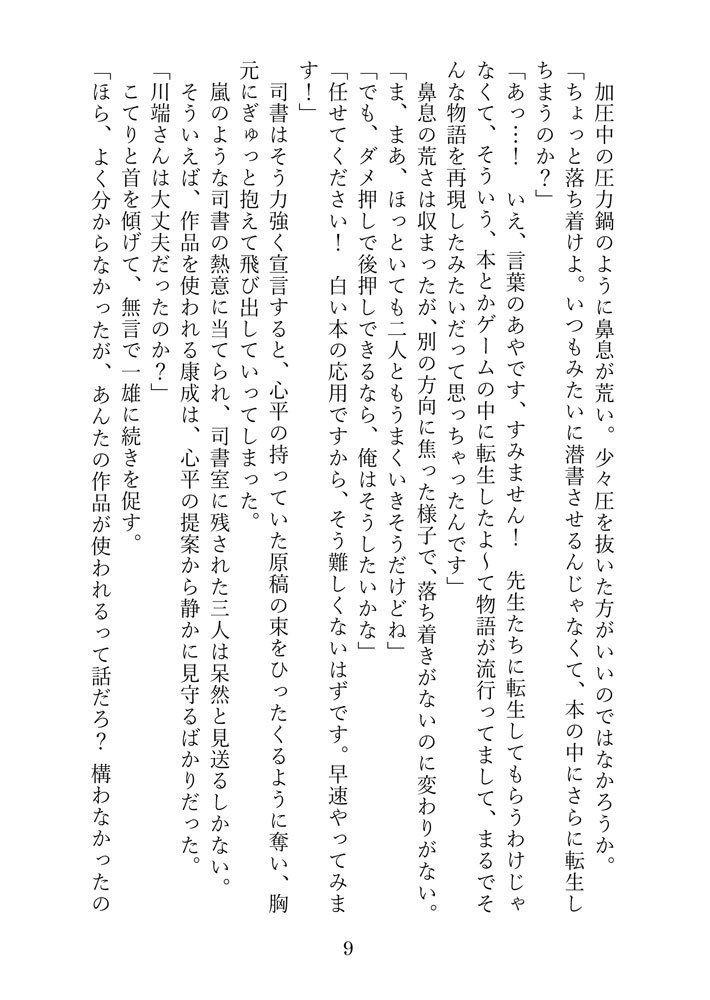 加圧中の圧力鍋のように鼻息が荒い。少々圧を抜いた方がいいのではなかろうか。
「ちょっと落ち着けよ。いつもみたいに潜書させるんじゃなくて、本の中にさらに転生し
ちまうのか？」
「あっ…！　いえ、言葉のあやです、すみません！　先生たちに転生してもらうわけじゃ
なくて、そういう、本とかゲームの中に転生したよ～て物語が流行ってまして、まるでそ
んな物語を再現したみたいだって思っちゃったんです」
　鼻息の荒さは収まったが、別の方向に焦った様子で、落ち着きがないのに変わりがない。
「ま、まあ、ほっといても二人ともうまくいきそうだけどね」
「でも、ダメ押しで後押しできるなら、俺はそうしたいかな」
「任せてください！　白い本の応用ですから、そう難しくないはずです。早速やってみま
す！」
　司書はそう力強く宣言すると、心平の持っていた原稿の束をひったくるように奪い、胸
元にぎゅっと抱えて飛び出していってしまった。
　嵐のような司書の熱意に当てられ、司書室に残された三人は呆然と見送るしかない。
　そういえば、作品を使われる康成は、心平の提案から静かに見守るばかりだった。
「川端さんは大丈夫だったのか？」
　こてりと首を傾げて、無言で一雄に続きを促す。
「ほら、よく分からなかったが、あんたの作品が使われるって話だろ？ 構わなかったの
9